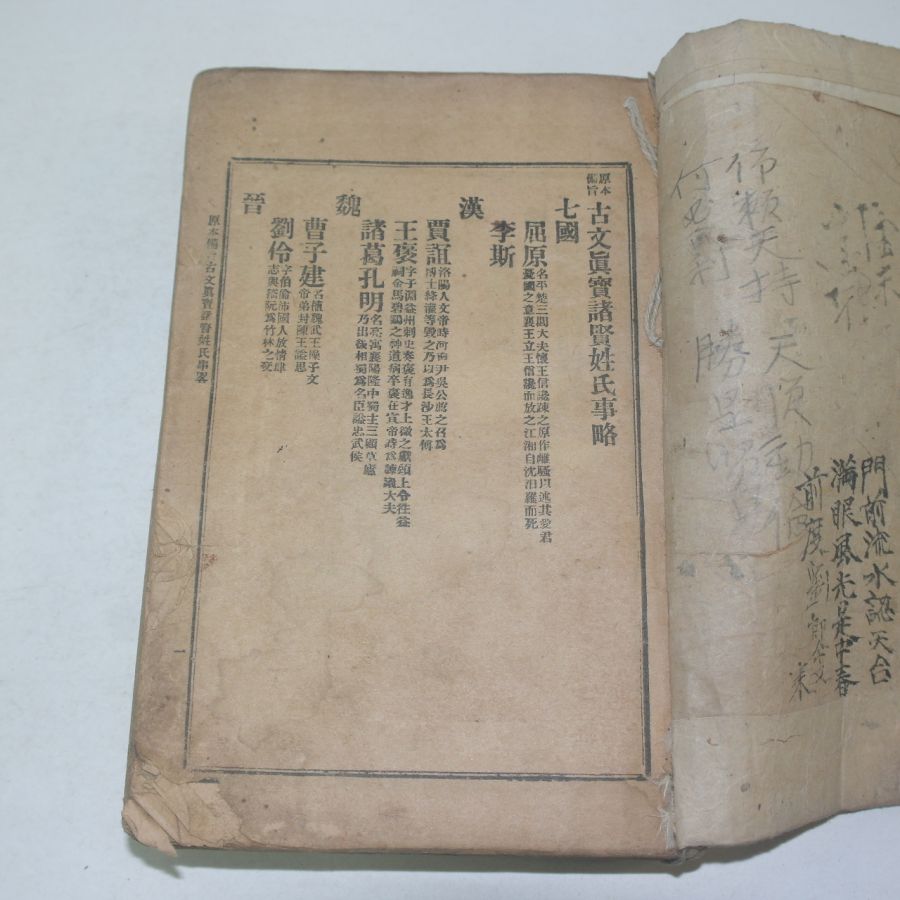 門前流水認天台
滿眼風光是中春
前度劉郎今又來
天
何
勝
原本備旨古文眞寶諸賢姓氏事略
七國
屈原 名平楚三閭大夫懷王信讒疎之原作離騷以述其愛君
憂國之意襄王立王信讒而放之江湘自沈汨羅而死
李斯
漢
賈誼 洛陽人文帝時河南尹吳公薦之召爲
博士絳灌等毁之乃以爲長沙王太傅
王褒 字子淵益州刺史奏褒有逸才上徵之獻頌上令往益
祠金馬碧鷄之神道病卒褒在宣帝時爲諫議大夫
魏
諸葛孔明 名亮寓襄陽隆中蜀主三顧草廬
乃出後相蜀爲名臣諡忠武侯
曹子建 名植魏武王操子文
帝弟封陳王諡思
晉
劉伶 字伯倫沛國人放情肆
志與嵇阮爲竹林之交
原本備旨古文眞寶諸賢姓氏事畧
一